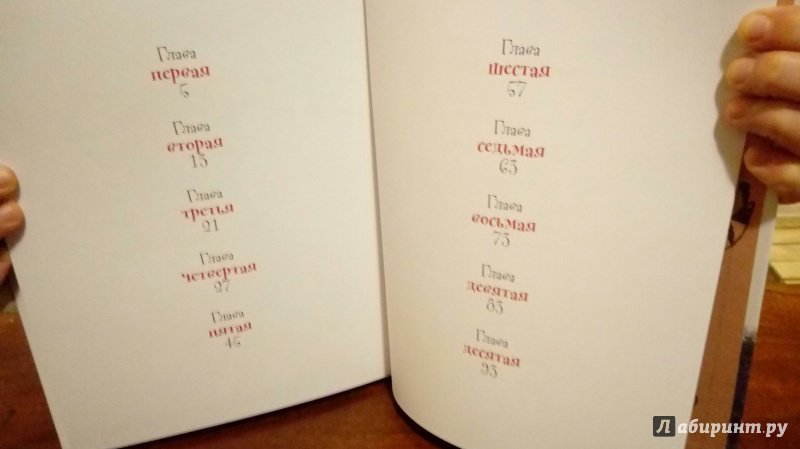 Глава
первая
5
Глава
вторая
13
Глава
третья
21
Глава
четвертая
27
Глава
пятая
45
Глава
шестая
57
Глава
седьмая
63
Глава
восьмая
73
Глава
девятая
83
Глава
десятая
93
Лабиринт.ру